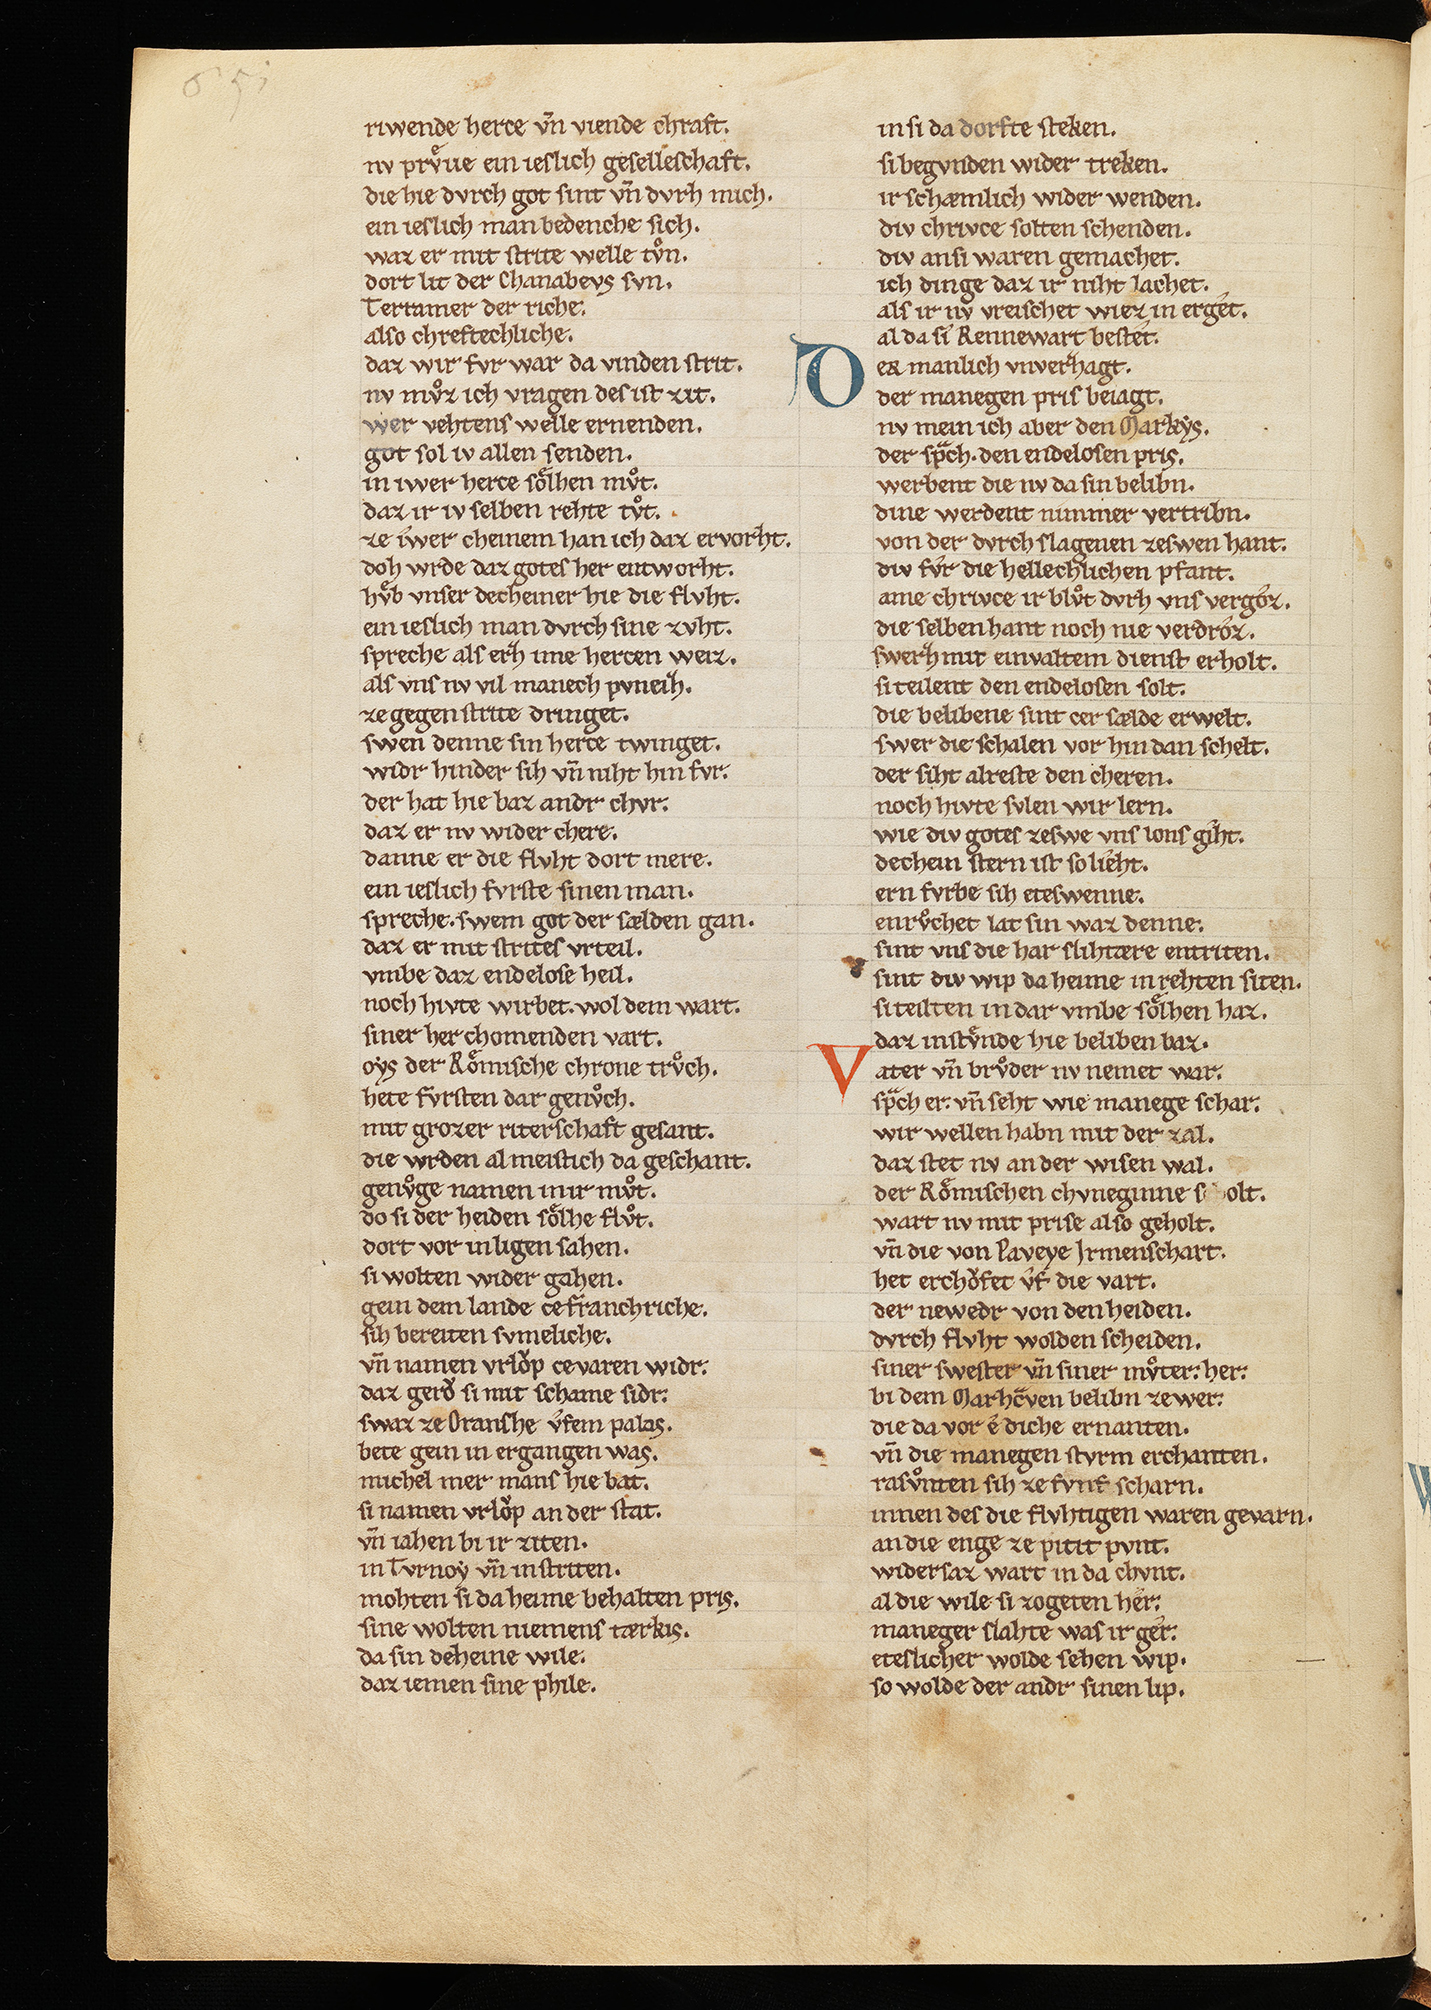 riwende herce vn̄ viende chraft.
nv prvͤue ein ieslich geselleschaft.
die hie dvrch got sint vn̄ dvrh mich.
ein ieslich man bedenche sich.
waz er mit strite welle tvͦn.
dort lit der Chanabevs svn.
Terramer der riche.
also chreftechliche.
daz wir fvr war da vinden strit.
nv mvͦz ich vragen des ist zit.
wer vehtens welle ernenden.
got sol iv allen senden.
in iwer herce soͤlhen mvͦt.
daz ir iv selben rehte tvͦt.
ze iwer cheinem han ich daz ervorht.
doh wrde daz gotes her entworht.
hvͤb vnser decheiner hie die flvht.
ein ieslich man dvrch sine zvht.
spreche als erh ime hercen weiz.
als vns nv vil manech pvneih.
ze gegen strite dringet.
swen denne sin herce twinget.
widr hinder sih vn̄ niht hin fvr.
der hat hie baz andr chvr.
daz er nv wider chere.
danne er die flvht dort mere.
ein ieslich fvrste sinen man.
spreche. swem got der sælden gan.
daz er mit strites vrteil.
vmbe daz endelose heil.
noch hivte wirbet. wol dem wart.
siner her chomenden vart.
oys der Roͤmische chrone trvͦch.
hete fvrsten dar genvͦch.
mit grozer riterschaft gesant.
die wrden al meistich da geschant.
genvͦge namen in ir mvͦt.
do si der heiden soͤlhe flvͦt.
dort vor in ligen sahen.
si wolten wider gahen.
gein dem lande ce franchriche.
sih bereiten svmeliche.
vn̄ namen vrloͮp cevaren widr.
daz geroͮ si mit schame sidr.
swaz ze Oranshe vf em palas.
bete gein in ergangen was.
michel mer mans hie bat.
si namen vrloͮp an der stat.
vn̄ iahen bi ir ziten.
in Tvrnoy vn̄ in striten.
mohten si da heime behalten pris.
sine wolten niemens tærkis.
da sin deheine wile.
daz iemen sine phile.
in si da dorfte steken.
si begvnden wider treken.
ir schæmlich wider wenden.
div chrivce solten schenden.
div an si waren gemachet.
ich dinge daz ir niht lachet.
als ir nv vreischet wiez in erget.
al da si Rennewart bestet.
Der manlich vnverhagt.
der manegen pris beiagt.
nv mein ich aber den Markys.
der spͣch. den endelosen pris.
werbent die nv da sin belibn.
dine werdent nimmer vertribn.
von der dvrch slagenen zeswen hant.
div fvr die hellechlichen pfant.
ame chrivce ir blvͦt dvrh vns vergoz.
die selben hant noch nie verdroz.
swerh mit einvaltem dienst erholt.
si teilent den endelosen solt.
die belibene sint cer sælde erwelt.
swer die schalen vor hin dan schelt.
der siht alreste den cheren.
noch hivte svlen wir lern.
wie div gotes zeswe vns lons giht.
dechein stern ist so lieht.
ern fvrbe sih eteswenne.
enrvͦchet lat sin waz denne.
sint vns die har slihtære entriten.
sint div wip da heime in rehten siten.
si teilten in dar vmbe soͤlhen haz.
daz in stvͤnde hie beliben baz.
Vater vn̄ brvͦder nv nemet war.
spͣch er. vn̄ seht wie manege schar.
wir wellen habn mit der zal.
daz stet nv an der wisen wal.
der Roͤmischen chvneginne s olt.
wart nv mit prise also geholt.
vn̄ die von Paveye Irmenschart.
het erchoͮfet vf die vart.
der newedr von den heiden.
dvrch flvht wolden scheiden.
siner swester vn̄ siner mvͦter. her.
bi dem Marhcͣven belibn ze wer.
die da vor e diche ernanten.
vn̄ die manegen stvrm erchanten.
rasvͦnten sih ze fvnf scharn.
innen des die flvhtigen waren gevarn.
an die enge ze pitit pvnt.
widersaz wart in da chvnt.
al die wile si zogeten her.
maneger slahte was ir ger.
eteslicher wolde sehen wip.
so wolde der andr sinen lip.